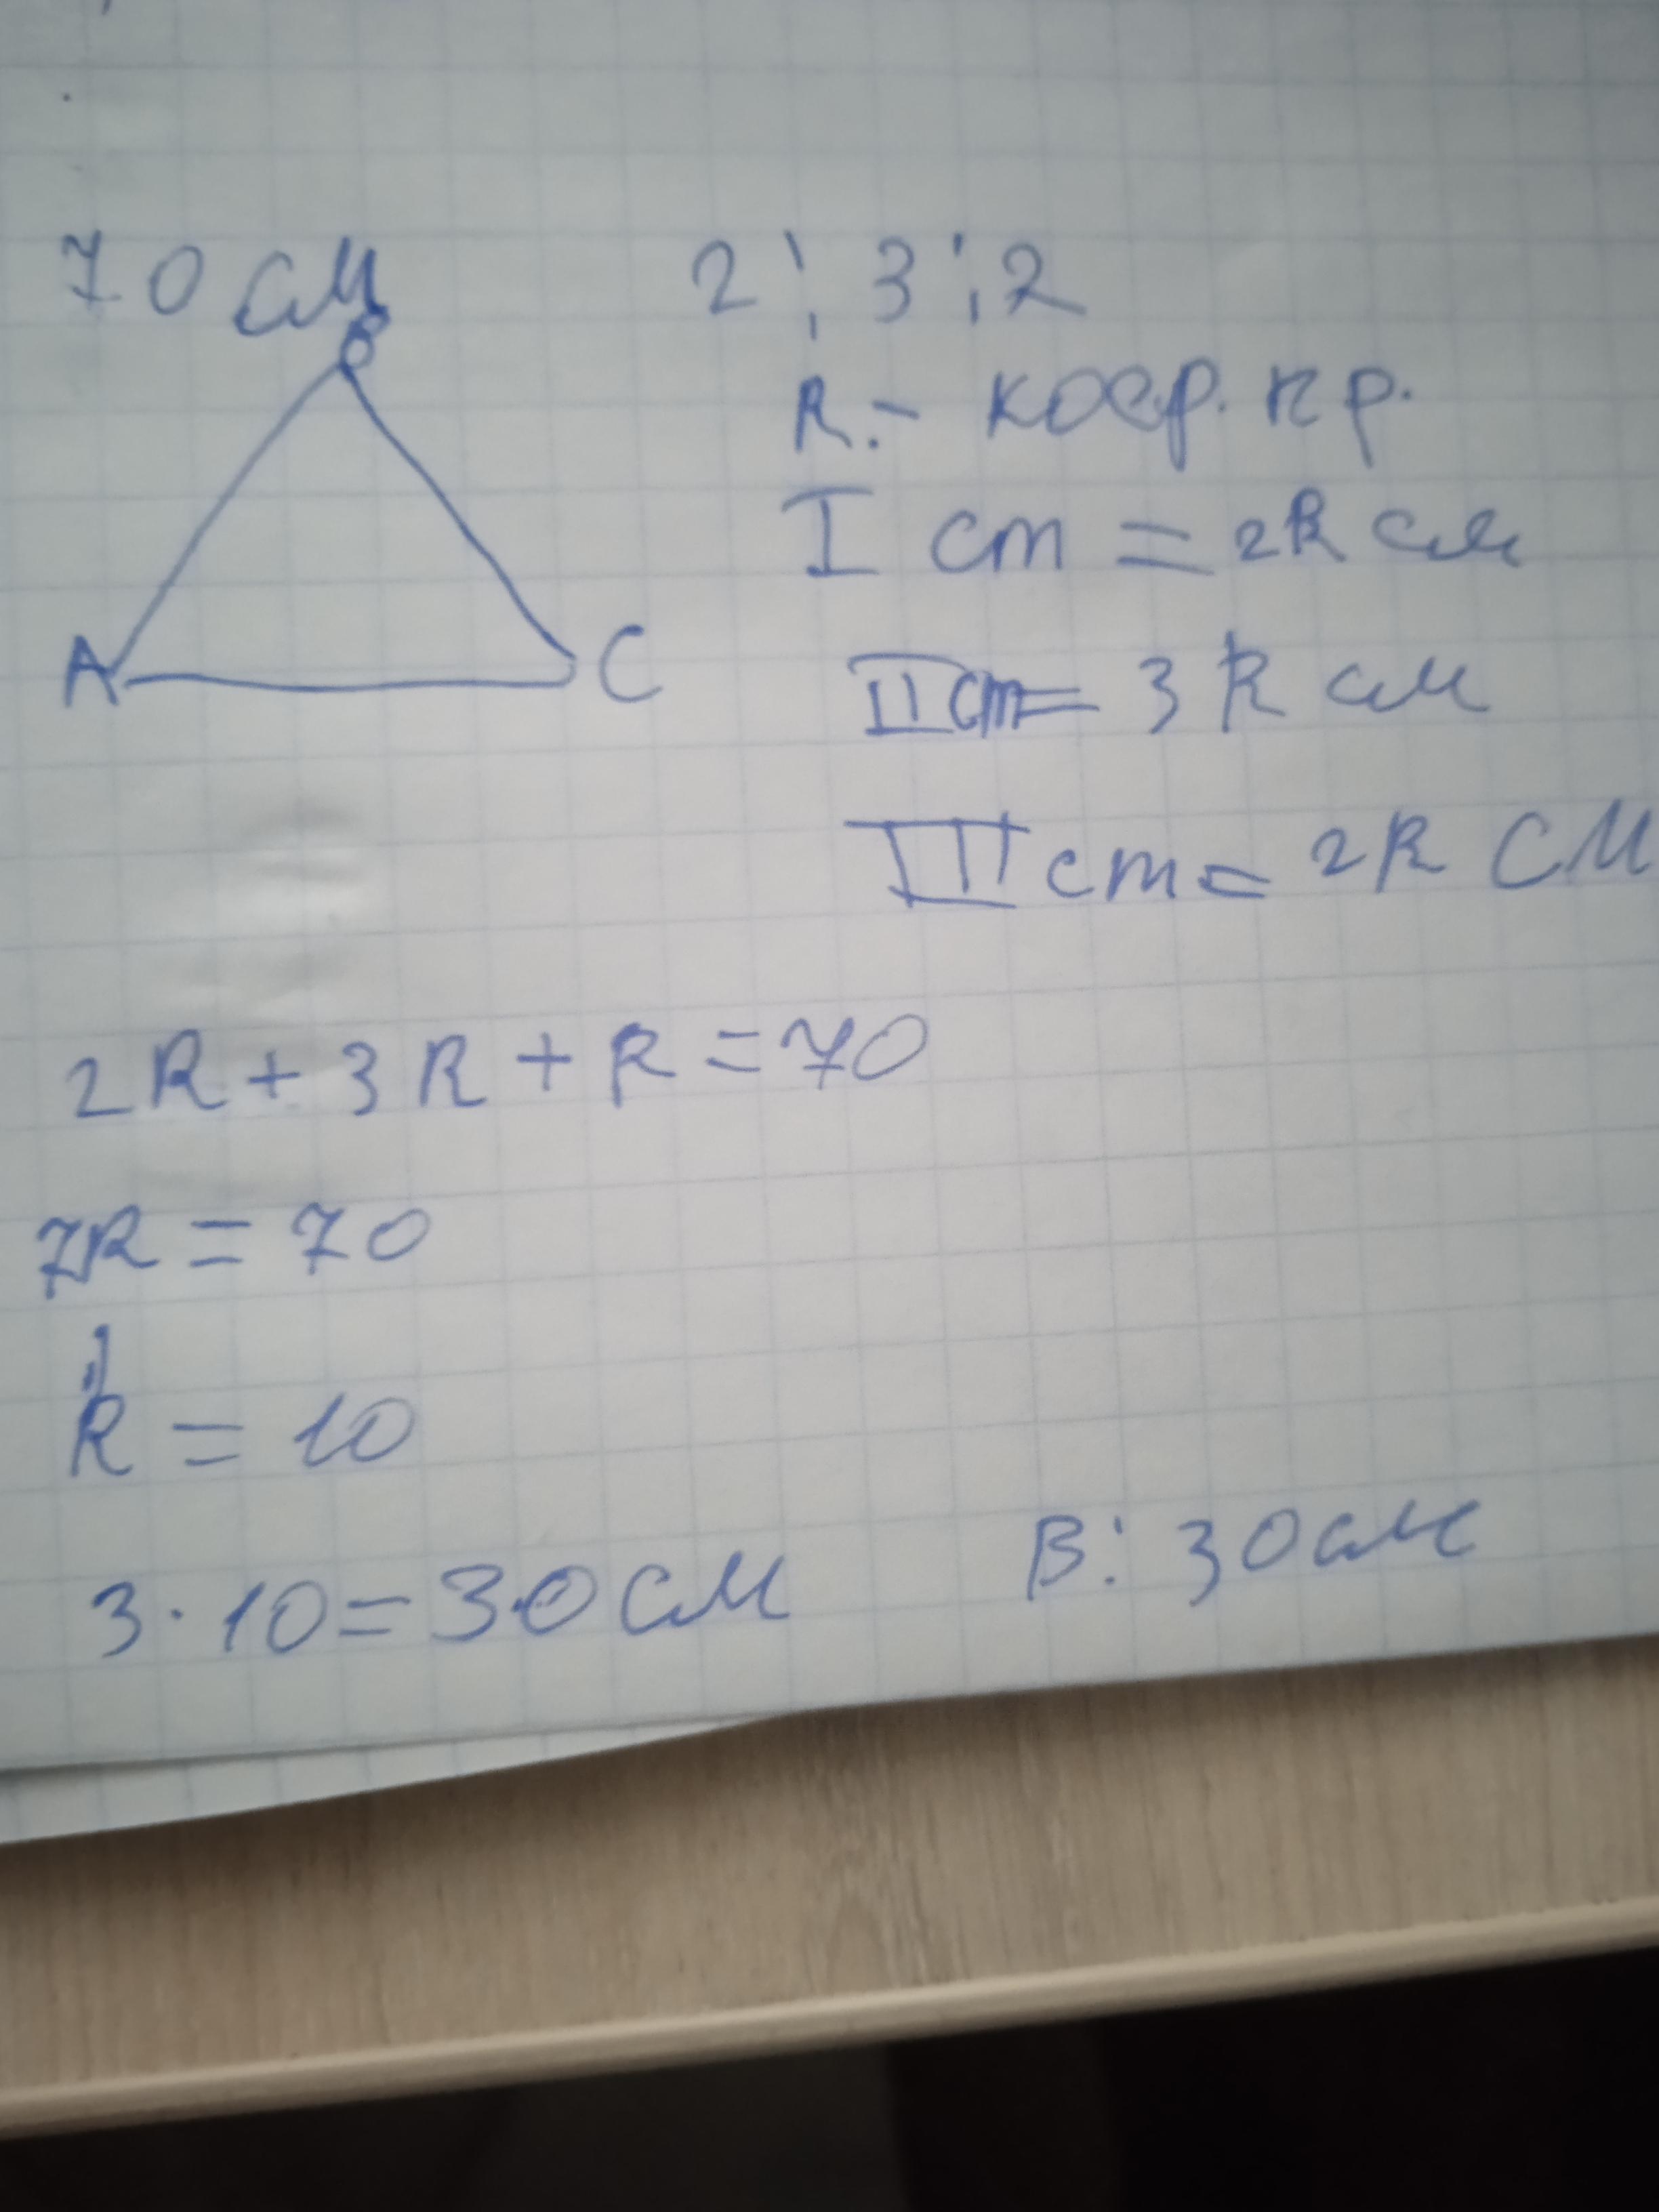 70 см
2 : 3 : 2
B
A
C
k. - коеф. пр.
I ст = 2k см
II ст = 3k см
III ст = 2k см
2k + 3k + k = 70
7k = 70
k = 10
3 · 10 = 30 см
В: 30 см